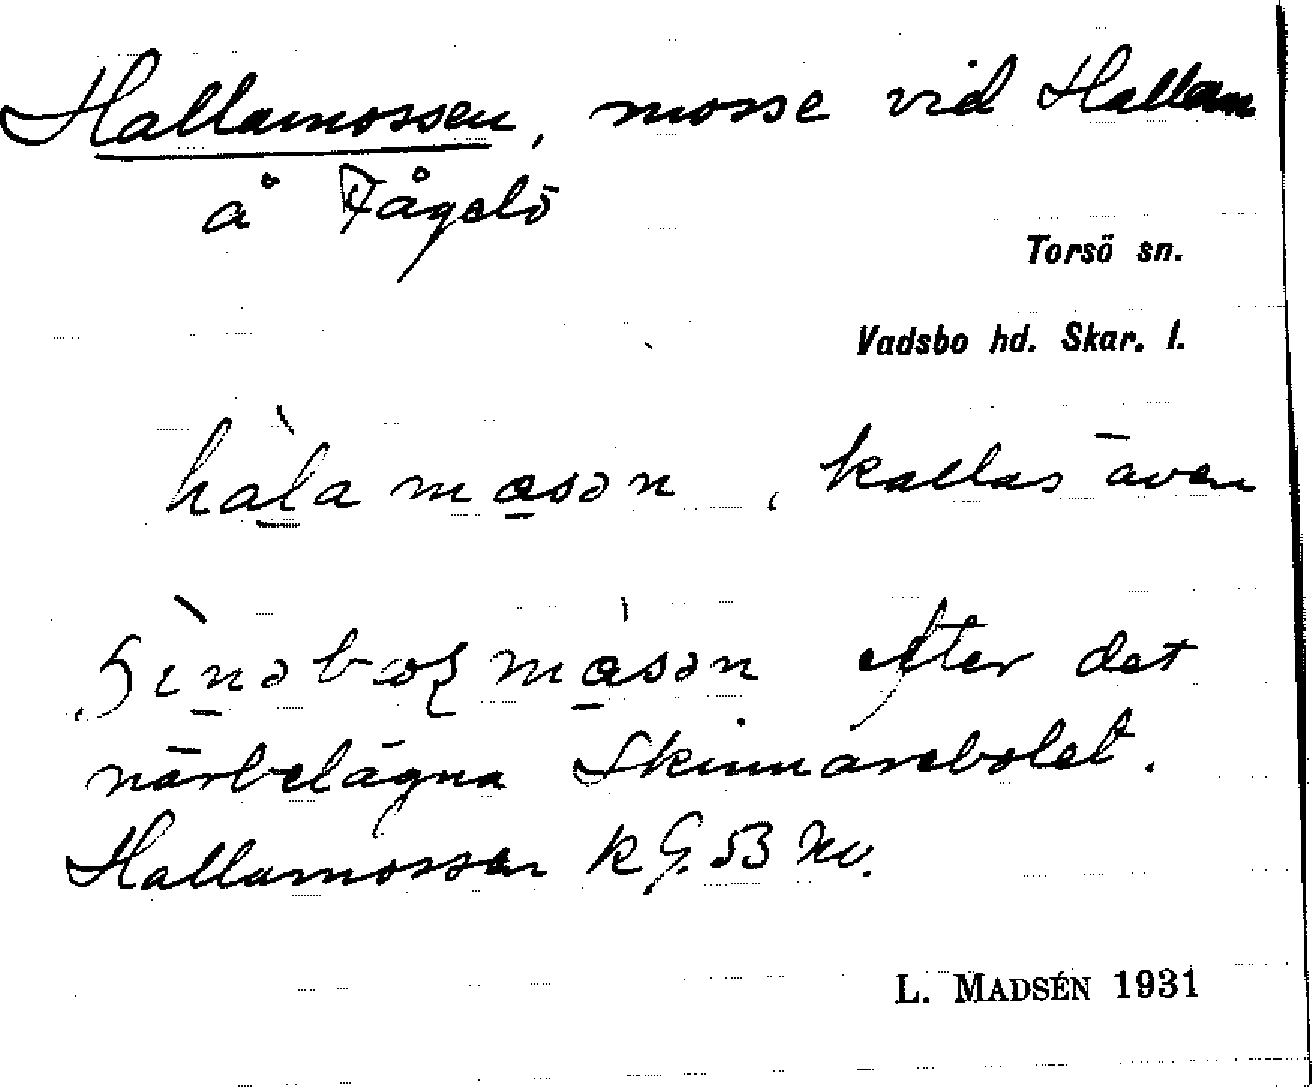 Hallamossen, mosse vid Hallan
å Fågelö
Torsö sn.
Vadsbo hd. Skar. l.
hàl̲a mo̲sən, kallas även
mo̲sən efter det
närbelägna Skinnarebolet.
Hallamossen k G. 53 NV.
L. MADSÉN 1931